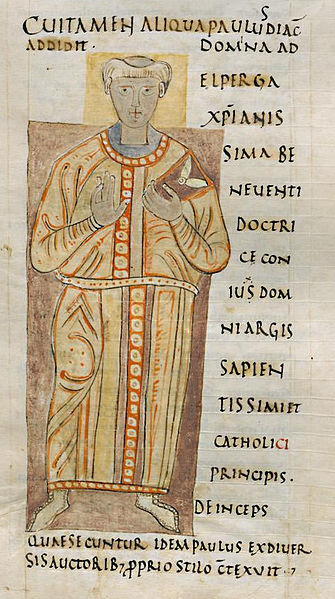 CUITAMEN ALIQUA PAULUS DIAC̅
ADDIDIT. DOMNA AD
ELPERGA
XP̅IANIS
SIMA BE
NEVENTI
DOCTRI
CE CON
IUS̅ DOM
NI ARGIS
SAPIEN
TISSIMI ET
CATHOLICI
PRINCIPIS.
DEINCEPS
QUAE SECUNTUR IDEM PAULUS EX DIVER
SIS AUCTORIB; P̱PRIO STILO C̅TEXUIT.